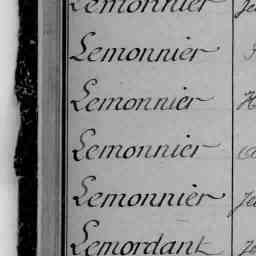 Lemonnier Je
Lemonnier
Lemonnier H
Lemonnier
Lemonnier Je
Lemordant Je